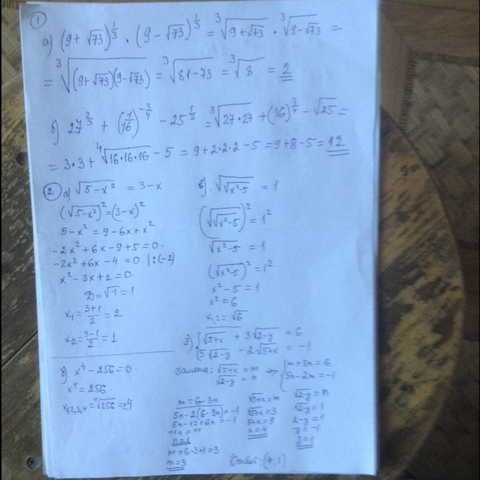 ①
а) (9+√73)^(1/3) · (9-√73)^(1/3) = ³√(9+√73) · ³√(9-√73) =
= ³√((9+√73)(9-√73)) = ³√(81-73) = ³√8 = 2
б) 27^(2/3) + (1/16)^(-3/4) - 25^(1/2) = ³√(27·27) + (16)^(3/4) - √25 =
= 3·3 + ⁴√(16·16·16) - 5 = 9+2·2·2-5 = 9+8-5 = 12
② а) √(5-x²) = 3-x
(√(5-x²))² = (3-x)²
5-x² = 9-6x+x²
-2x²+6x-9+5=0
-2x²+6x-4=0 |:(-2)
x²-3x+2=0
D=√1=1
x₁ = (3+1)/2 = 2
x₂ = (3-1)/2 = 1
б) √(√(x²-5)) = 1
(√(√(x²-5)))² = 1²
√(x²-5) = 1
(√(x²-5))² = 1²
x²-5=1
x²=6
x₁,₂=√6
в) x⁴-256=0
x⁴=256
x₁,₂,₃,₄=⁴√256=±4
3) {√(5+x) + 3√(2-y) = 6
5√(2-y) - 2√(5+x) = -1
замена: √(5+x) = m
√(2-y) = n
{m+3n=6
5n-2m=-1
m=6-3n
5n-2(6-3n)=-1
5n-12+6n=-1
11n=11
n=1
m=6-3·1=3
m=3
√(5+x)=m
√(5+x)=3
5+x=9
x=4
√(2-y)=n
√(2-y)=1
2-y=1
y=1
Ответ: (4;1)